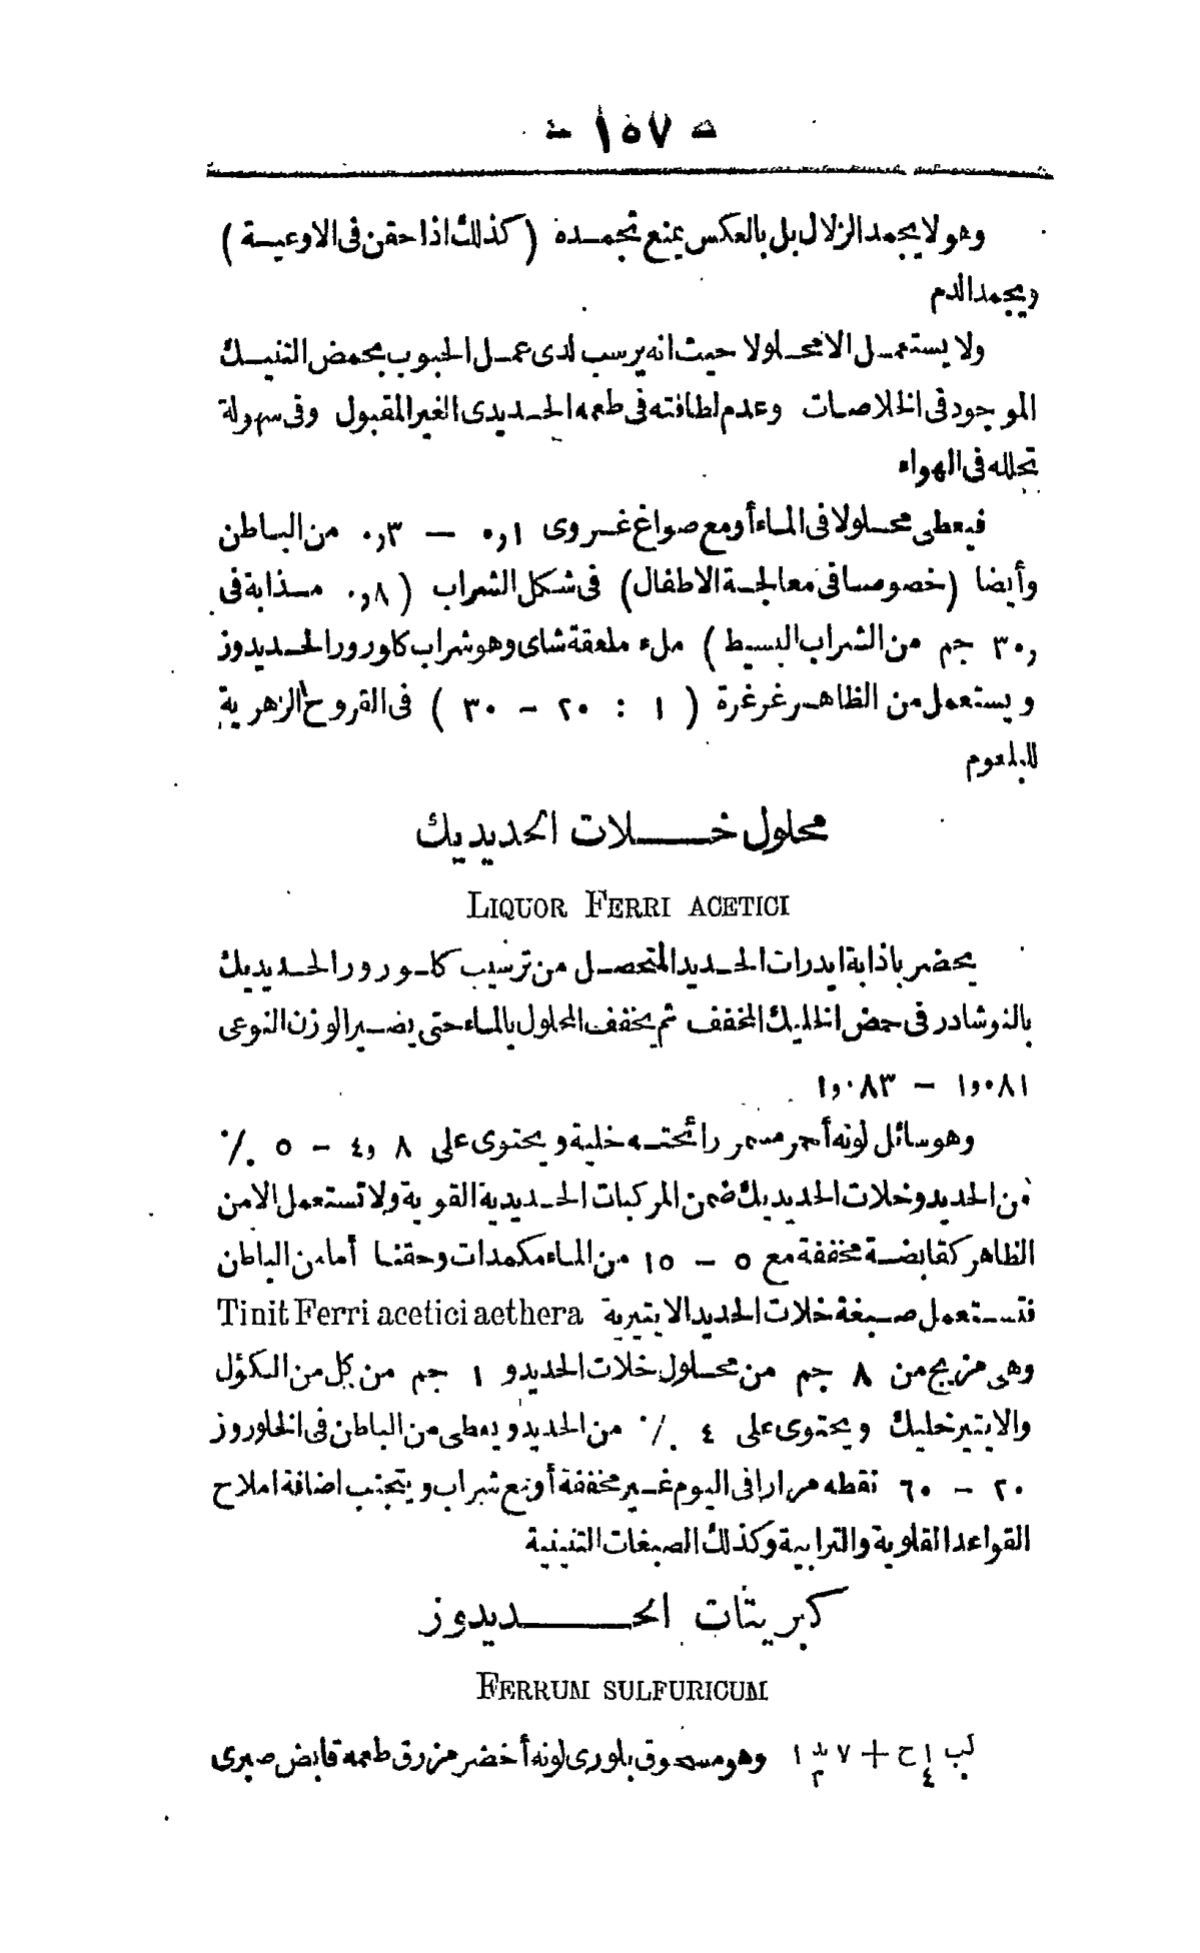 — ١٥٧ —
وهو لا يجمد الزلال بل بالعكس يمنع تجمده (كذلك اذا حقن فى الاوعية)
ويجمد الدم
ولا يستعمل الا محلولا حيث انه يرسب لدى عمل الحبوب بحمض التنيك
الموجود فى الخلاصات وعدم لطافته فى طعمه الحديدى الغير المقبول وفى سهولة
تحلله فى الهواء
فيعطى محلولا فى الماء أو مع صواغ غروى ٠٫١ — ٠٫٣ من الباطن
وأيضا (خصوصا فى معالجة الاطفال) فى شكل الشراب (٠٫٨ مذابة فى
٣٠٫ جم من الشراب البسيط) ملء ملعقة شاى وهو شراب كلورور الحديدوز
ويستعمل من الظاهر غرغرة (١ : ٢٠ — ٣٠) فى القروح الزهرية
للبلعوم
محلول خلات الحديديك
LIQUOR FERRI ACETICI
يحضر باذابة ايدرات الحديد المتحصل من ترسيب كلورور الحديديك
بالنوشادر فى حمض الخليك المخفف ثم يخفف المحلول بالماء حتى يصير الوزن النوعى
١٫٠٨١ — ١٫٠٨٣
وهو سائل لونه أحمر مسمر رائحته خلية ويحتوى على ٤٫٨ — ٥ ٪
من الحديد وخلات الحديديك ضمن المركبات الحديدية القوية ولا تستعمل الا من
الظاهر كقابضة مخففة مع ٥ — ١٥ من الماء مكمدات وحقنا أما من الباطن
فتستعمل صبغة خلات الحديد الايتيرية Tinit Ferri acetici aethera
وهى مزيج من ٨ جم من محلول خلات الحديد و ١ جم من كل من الكؤل
والايتير خليك ويحتوى على ٤ ٪ من الحديد ويعطى من الباطن فى الخلوروز
٢٠ — ٦٠ نقطه مرارا فى اليوم غير مخففة أو مع شراب ويتجنب اضافة املاح
القواعد القلوية والترابية وكذلك الصبغات التنينية
كبريتات الحديدوز
FERRUM SULFURICUM
وهو مسحوق بلورى لونه أخضر مزرق طعمه قابض صبرى